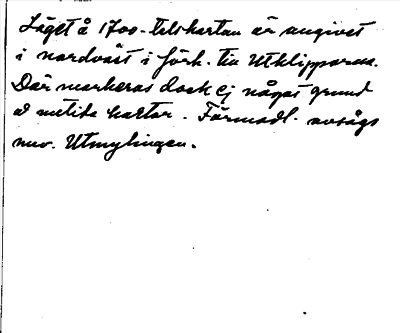 Läget å 1700-talskartan är angivet
i nordväst i förh. till Utklipporna.
Där markeras dock ej något grund
å nutida kartor. Förmodl. avsågs
nuv. Utmylingen.